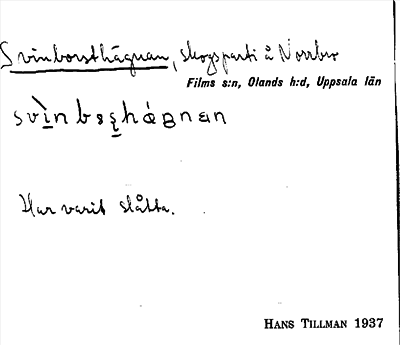 Svinborsthägnan, skogsparti å Norrbo
Films s:n, Olands h:d, Uppsala län
Har varit slåtta.
HANS TILLMAN 1937